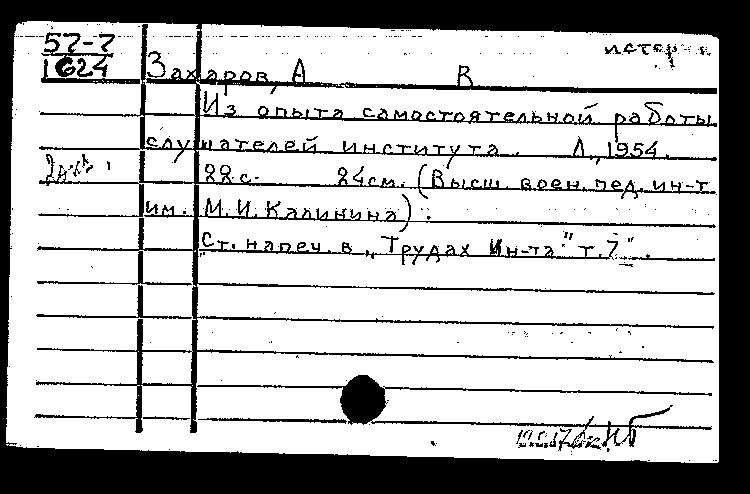 57-7
1624
Захаров, А В
Из опыта самостоятельной работы
слушателей института. Л., 1954.
22с. 24см. (Высш. воен. пед. ин-т
им. М.И. Калинина).
Ст. напеч. в „Трудах Ин-та" т. 7".